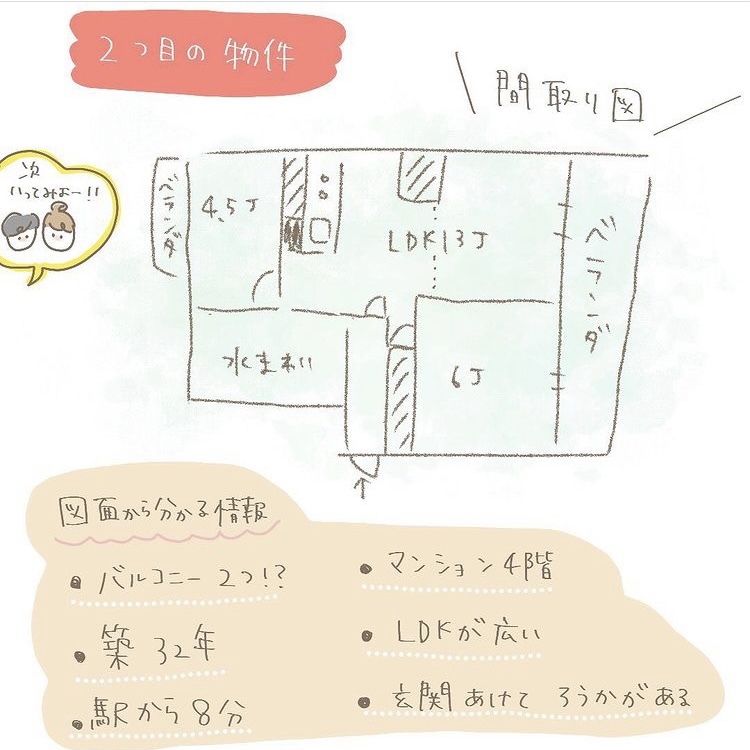 2つ目の物件
間取り図
次
いってみよー!!
ベランダ
4.5J
LDK13J
ベランダ
水まわり
6J
図面から分かる情報
• バルコニー2つ!?
• 築32年
• 駅から8分
• マンション4階
• LDKが広い
• 玄関あけてろうかがある